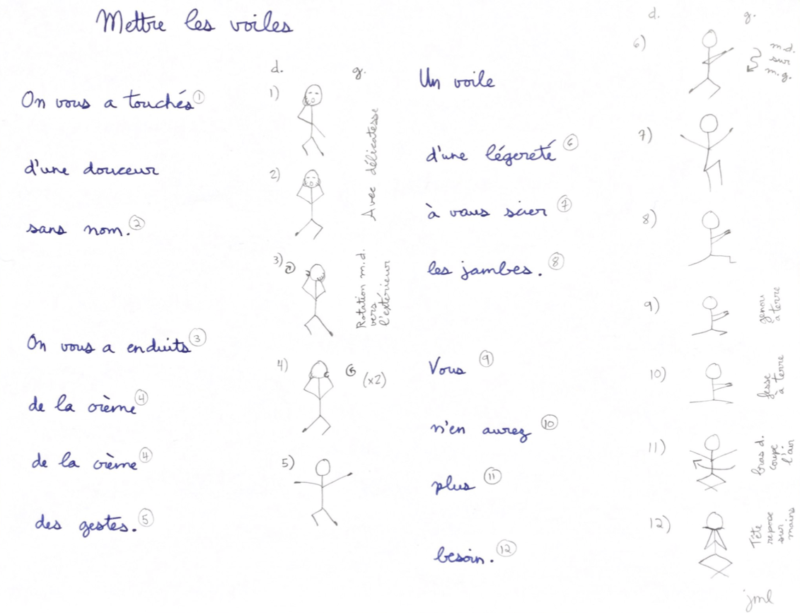 Mettre les voiles
On vous a touchés ①
d'une douceur
sans nom. ②
On vous a enduits ③
de la crème ④
de la crème ④
des gestes. ⑤
d. g.
1)
2)
Avec délicatesse
3)
Rotation m.d.
vers
l'extérieur
4)
(x2)
5)
Un voile
d'une légereté ⑥
à vous scier ⑦
les jambes. ⑧
Vous ⑨
n'en aurez ⑩
plus ⑪
besoin. ⑫
d. g.
6)
m.d.
sur
m.g.
7)
8)
9)
genou
à terre
10)
fesse
à terre
11)
bras d.
coupe
l'air
12)
Tête
repose
sur
mains
jml